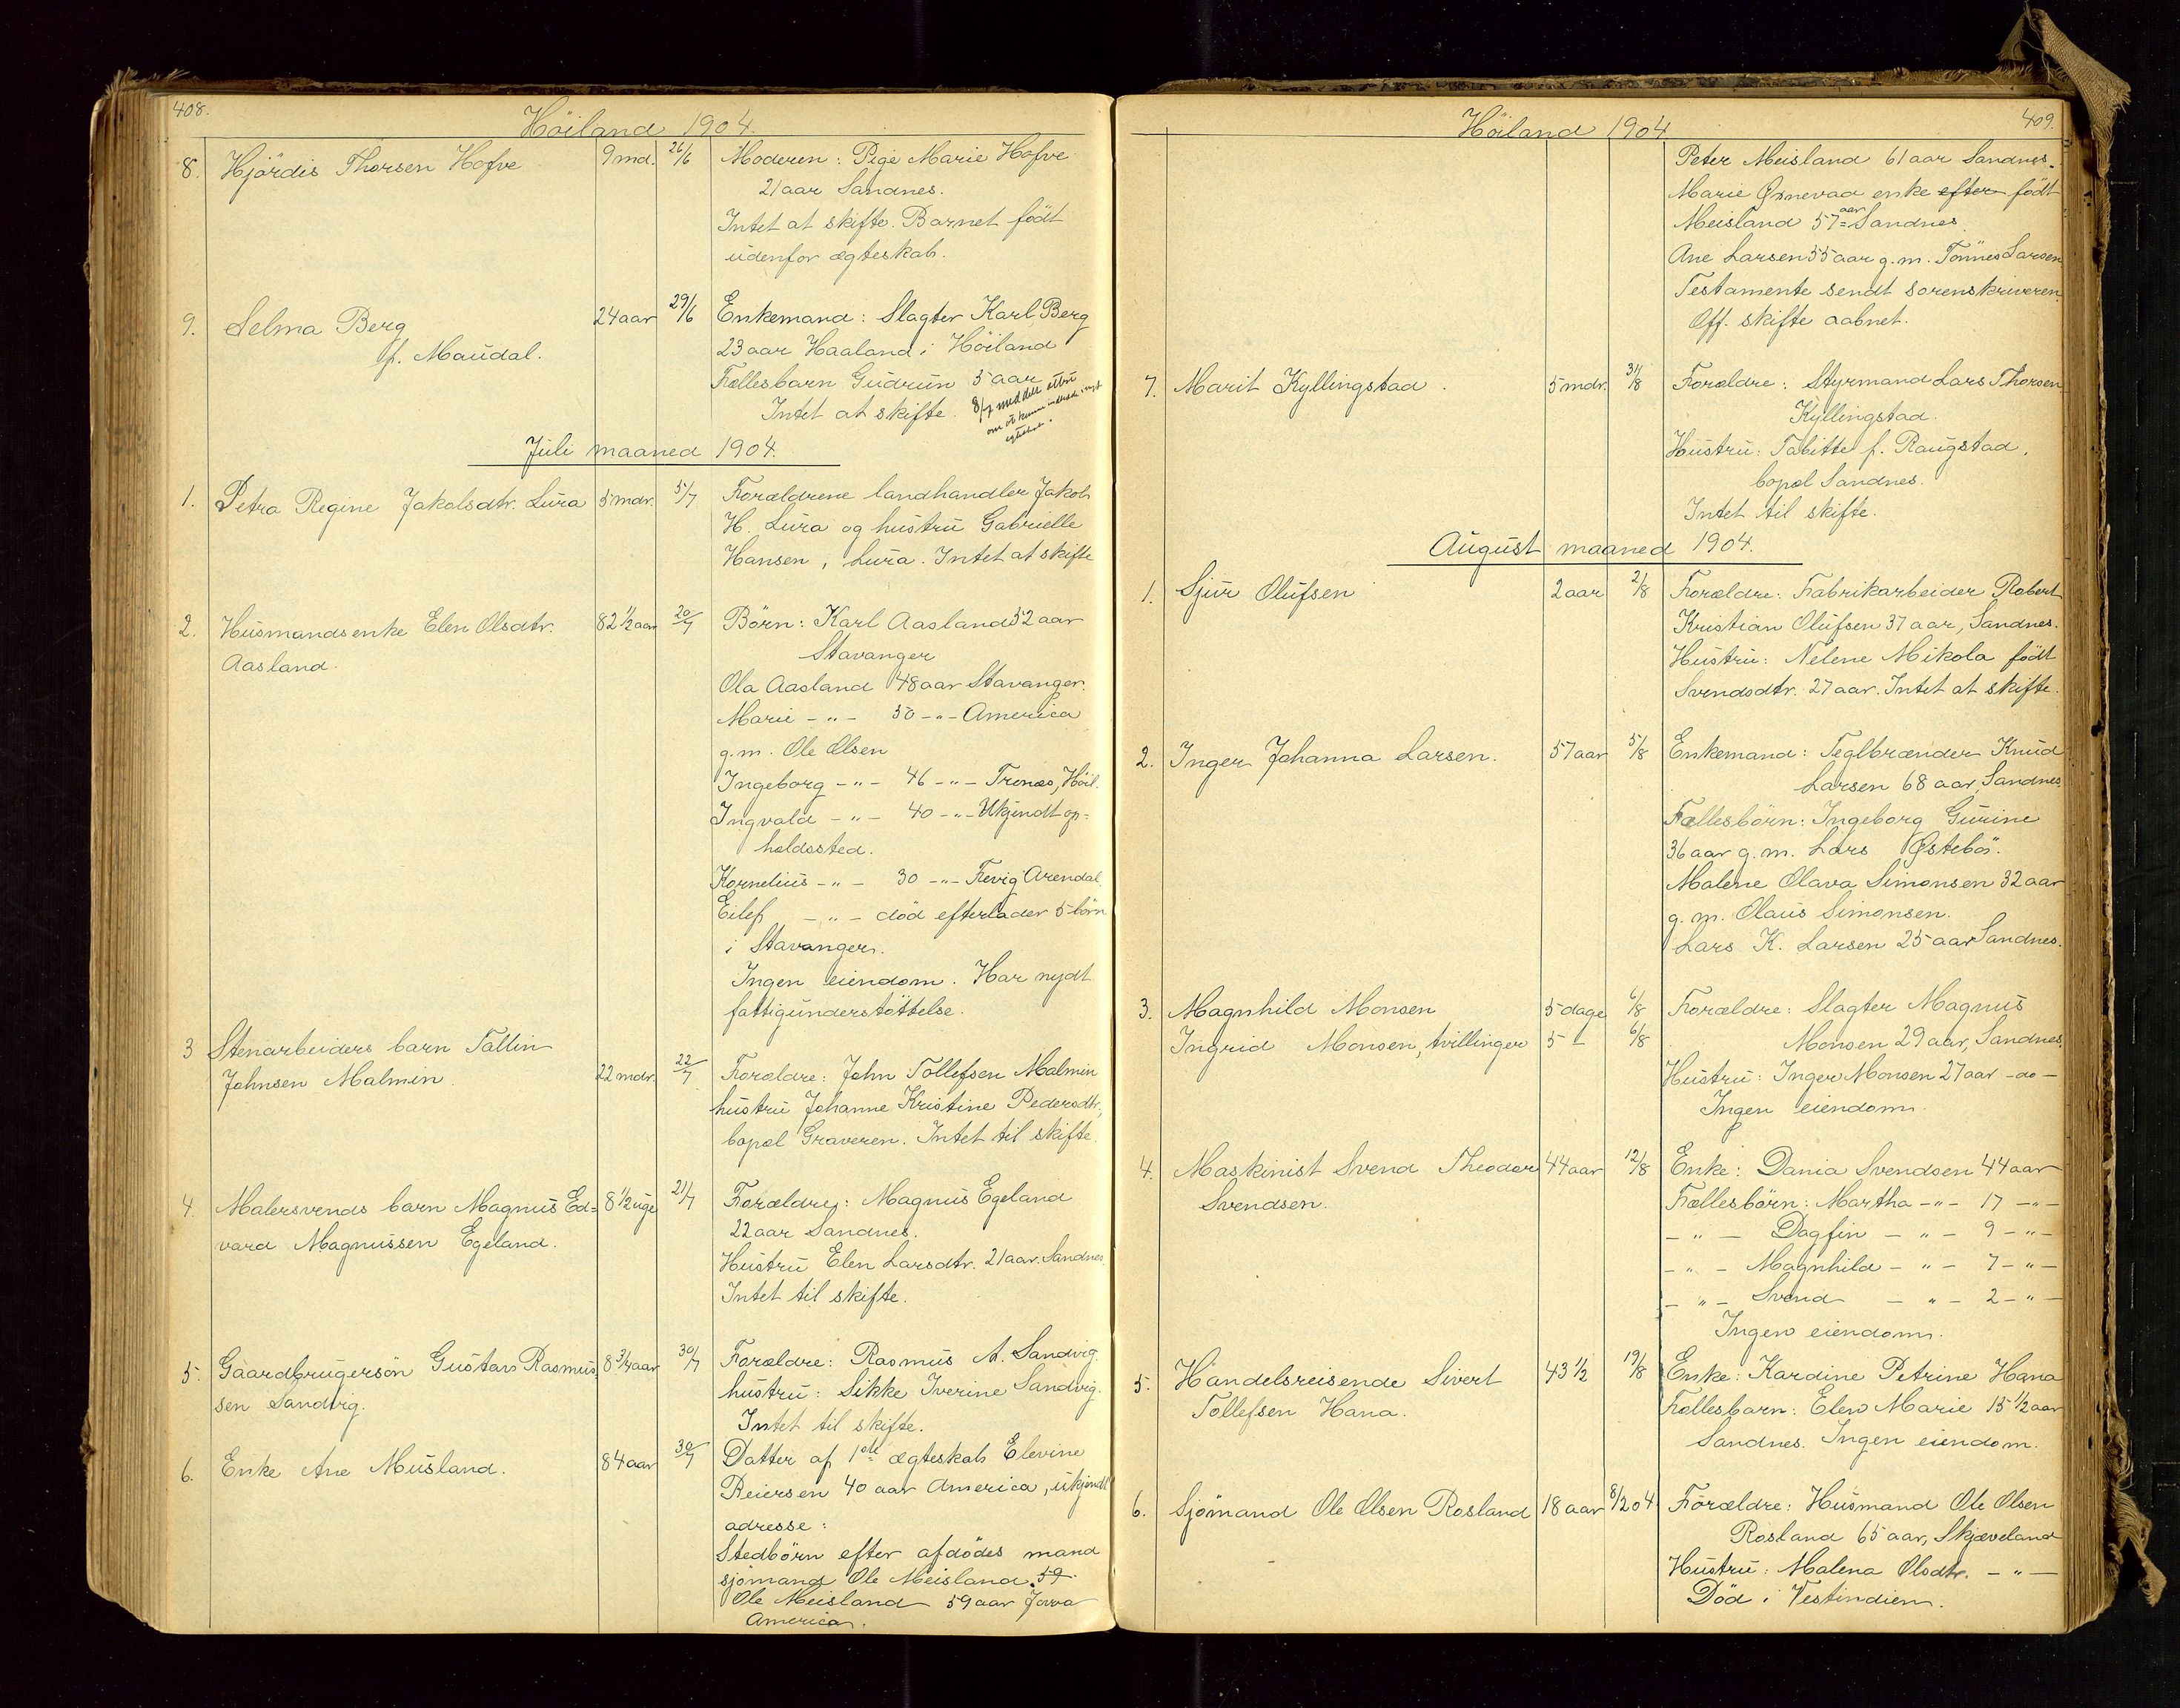 408.
Höiland 1904.
8. Hjördis Thorsen Hofve 9 md. 26/6 Moderen: Pige Marie Hofve
21 aar Sandnes.
Intet at skifte. Barnet født
udenfor ægteskab.
9. Selma Berg 24 aar 29/6 Enkemand: Slagter Karl Berg
f. Maudal. 23 aar Haaland i Höiland
Fællesbarn Gudrun 5 aar
Intet at skifte. 8/7 meddelt attest
om at kunne indtræde i nyt
egteskab.
Juli maaned 1904.
1. Petra Regine Jakobsdtr. Lura 5 mdr. 5/7 Forældrene landhandler Jakob
H. Lura og hustru Gabrielle
Hansen, Lura. Intet at skifte
2. Husmandsenke Elen Olsdtr. 82 1/2 aar 20/7 Börn: Karl Aasland 52 aar
Aasland. Stavanger
Ola Aasland 48 aar Stavanger.
Marie -"- 50 -"- America
g.m. Ole Olsen
Ingeborg -"- 46 -"- Tronæs, Höil.
Ingvald -"- 40 -"- Ukjendt op-
holdssted.
Kornelius -"- 30 -"- Fevig Arendal.
Eilef -"- död efterlader 5 börn
i Stavanger.
Ingen eiendom. Har nydt
fattigunderstöttelse.
3 Stenarbeiders barn Tallin
Johnsen Malmin. 22 mdr. 22/7 Forældre: John Tollefsen Malmin
hustru Johanne Kristine Pedersdtr,
bopæl Graveren. Intet til skifte.
4. Malersvends barn Magnus Ed= 8 1/2 uge 21/7 Forældre: Magnus Egeland
vard Magnussen Egeland. 22 aar Sandnes.
Hustru Elen Larsdtr. 21 aar. Sandnes.
Intet til skifte.
5. Gaardbrugersön Gustav Rasmus 8 3/4 aar 30/7 Forældre: Rasmus A. Sandvig.
sen Sandvig. hustru: Sikke Iverine Sandvig.
Intet til skifte.
6. Enke Ane Meisland. 84 aar 30/7 Datter af 1ste ægteskab Elevine
Reiersen 40 aar America, ukjendt
adresse:
Stedbörn efter afdödes mand
sjömand Ole Meisland. 59
Ole Meisland 59 aar Jowa
America.
409.
Höiland 1904
Peter Meisland 61 aar Sandnes.
Marie Ønnevad enke efter født
Meisland 57 aar Sandnes.
Ane Larsen 55 aar g.m. Tönnes Larsen
Testamente sendt sorenskriveren
Off. skifte aabnet.
7. Marit Kyllingstad. 5 mdr. 31/8 Forældre: Styrmand Lars Thorsen
Kyllingstad.
Hustru: Tabitte f. Raugstad,
bopæl Sandnes.
Intet til skifte.
August maaned 1904.
1. Sjur Olufsen 2 aar 2/8 Forældre: Fabrikarbeider Robert
Kristian Olufsen 37 aar, Sandnes.
Hustru: Nelene Mikola født
Svendsdtr. 27 aar. Intet at skifte.
2. Inger Johanna Larsen. 57 aar 5/8 Enkemand: Teglbrænder Knud
Larsen 68 aar, Sandnes.
Fællesbörn: Ingeborg Gurine
36 aar g.m. Lars Østebö.
Malene Olava Simonsen 32 aar
g.m. Olaus Simonsen.
Lars K. Larsen 25 aar Sandnes.
3. Magnhild Monsen 5 dage 6/8 Forældre: Slagter Magnus
Ingrid Monsen, tvillinger 5 - 6/8 Monsen 29 aar, Sandnes.
Hustru: Inger Monsen 27 aar -do-
Ingen eiendom.
4. Maskinist Svend Theodor 44 aar 12/8 Enke: Dania Svendsen 44 aar
Svendsen. Fællesbörn: Martha -"- 17 -"-
-"- Dagfin -"- 9 -"-
-"- Magnhild -"- 7 -"-
-"- Svend -"- 2 -"-
Ingen eiendom.
5. Handelsreisende Sivert 43 1/2 19/8 Enke: Kardine Petrine Hana
Tollefsen Hana. Fællesbarn: Elen Marie 15 1/2 aar
Sandnes. Ingen eiendom.
6. Sjömand Ole Olsen Rosland 18 aar 8/2 04 Forældre: Husmand Ole Olsen
Rosland 65 aar, Skjæveland
Hustru: Malena Olsdtr. -"-
Död i Vestindien.